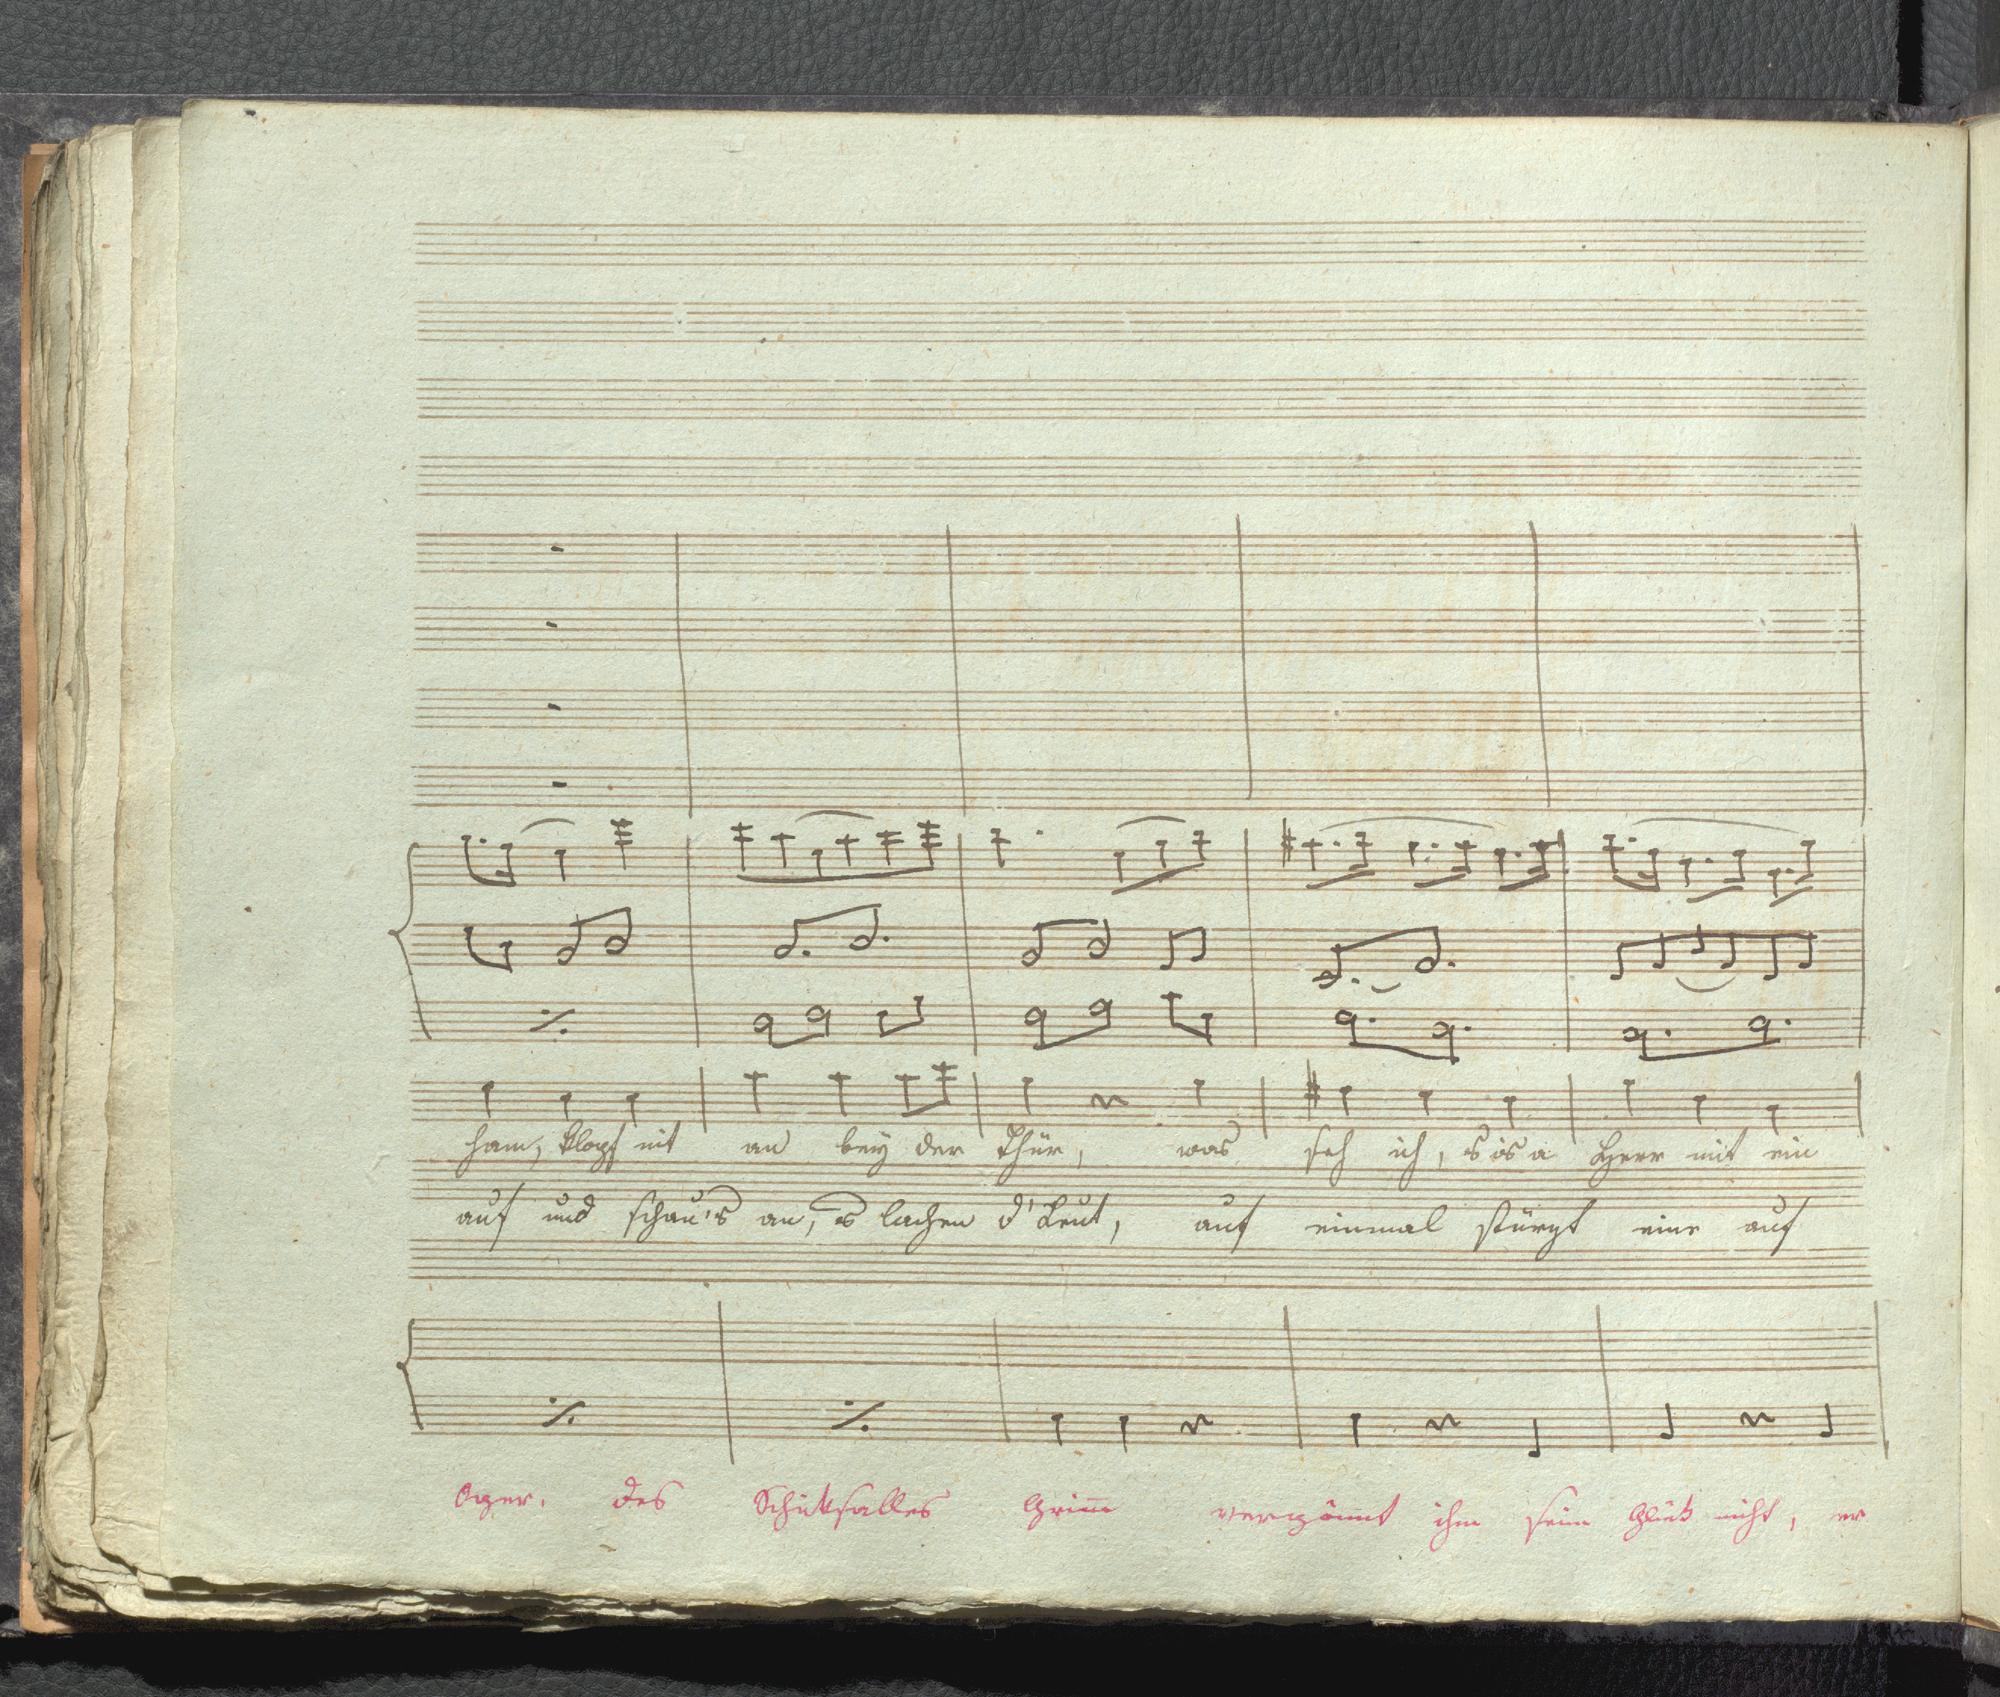 ham, klopf nit an bey der Thür, was seh ich, s'is a Herr mit ein
auf und schau's an, es lachen d'Leut, auf einmal stürzt eine auf
des Schiksalles Grimm vergönnt ihm sein Glük nicht, er